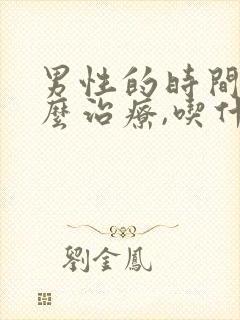 男性的時間
麼治療,喫什
劉金鳳